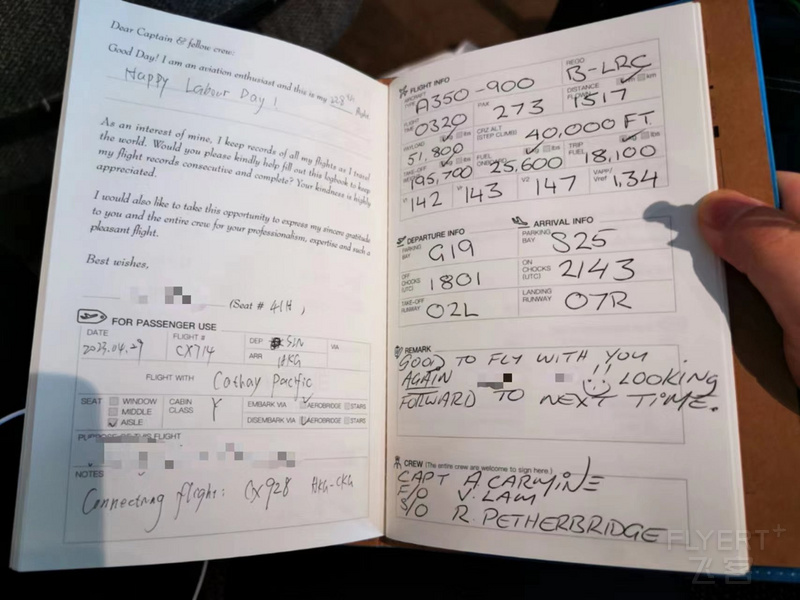 Dear Captain & fellow crew:
Good Day! I am an aviation enthusiast and this is my 228th flight.
Happy Labour Day!
As an interest of mine, I keep records of all my flights as I travel
the world. Would you please kindly help fill out this logbook to keep
my flight records consecutive and complete? Your kindness is highly
appreciated.
I would also like to take this opportunity to express my sincere gratitude
to you and the entire crew for your professionalism, expertise and such a
pleasant flight.
Best wishes,
(Seat # 41H )
FOR PASSENGER USE
DATE 2023.04.29 FLIGHT # CX714 DEP SIN VIA
ARR HKG
FLIGHT WITH Cathay Pacific
SEAT WINDOW MIDDLE AISLE CABIN CLASS Y EMBARK VIA AEROBRIDGE STAIRS
DISEMBARK VIA AEROBRIDGE STAIRS
PURPOSE OF THIS FLIGHT
NOTES
Connecting flight: CX928 HKG-CKG
FLIGHT INFO
AIRCRAFT TYPE A350-900 REGO B-LRC
FLIGHT TIME 0320 PAX 273 DISTANCE FLOWN 1517 km
PAYLOAD 51,800 CRZ ALT (STEP CLIMB) 40,000 FT
TAKE-OFF WEIGHT 195,700 FUEL ONBOARD 25,600 TRIP FUEL 18,100
V1 142 Vr 143 V2 147 VAPP/Vref 134
DEPARTURE INFO
PARKING BAY G19
OFF CHOCKS (UTC) 1801
TAKE-OFF RUNWAY 02L
ARRIVAL INFO
PARKING BAY S25
ON CHOCKS (UTC) 2143
LANDING RUNWAY 07R
REMARK
GOOD TO FLY WITH YOU
AGAIN !! LOOKING
FORWARD TO NEXT TIME.
CREW (The entire crew are welcome to sign here.)
CAPT A CARMINE
F/O V. LAM
S/O R. PETHERBRIDGE
FLYERT+
飞客